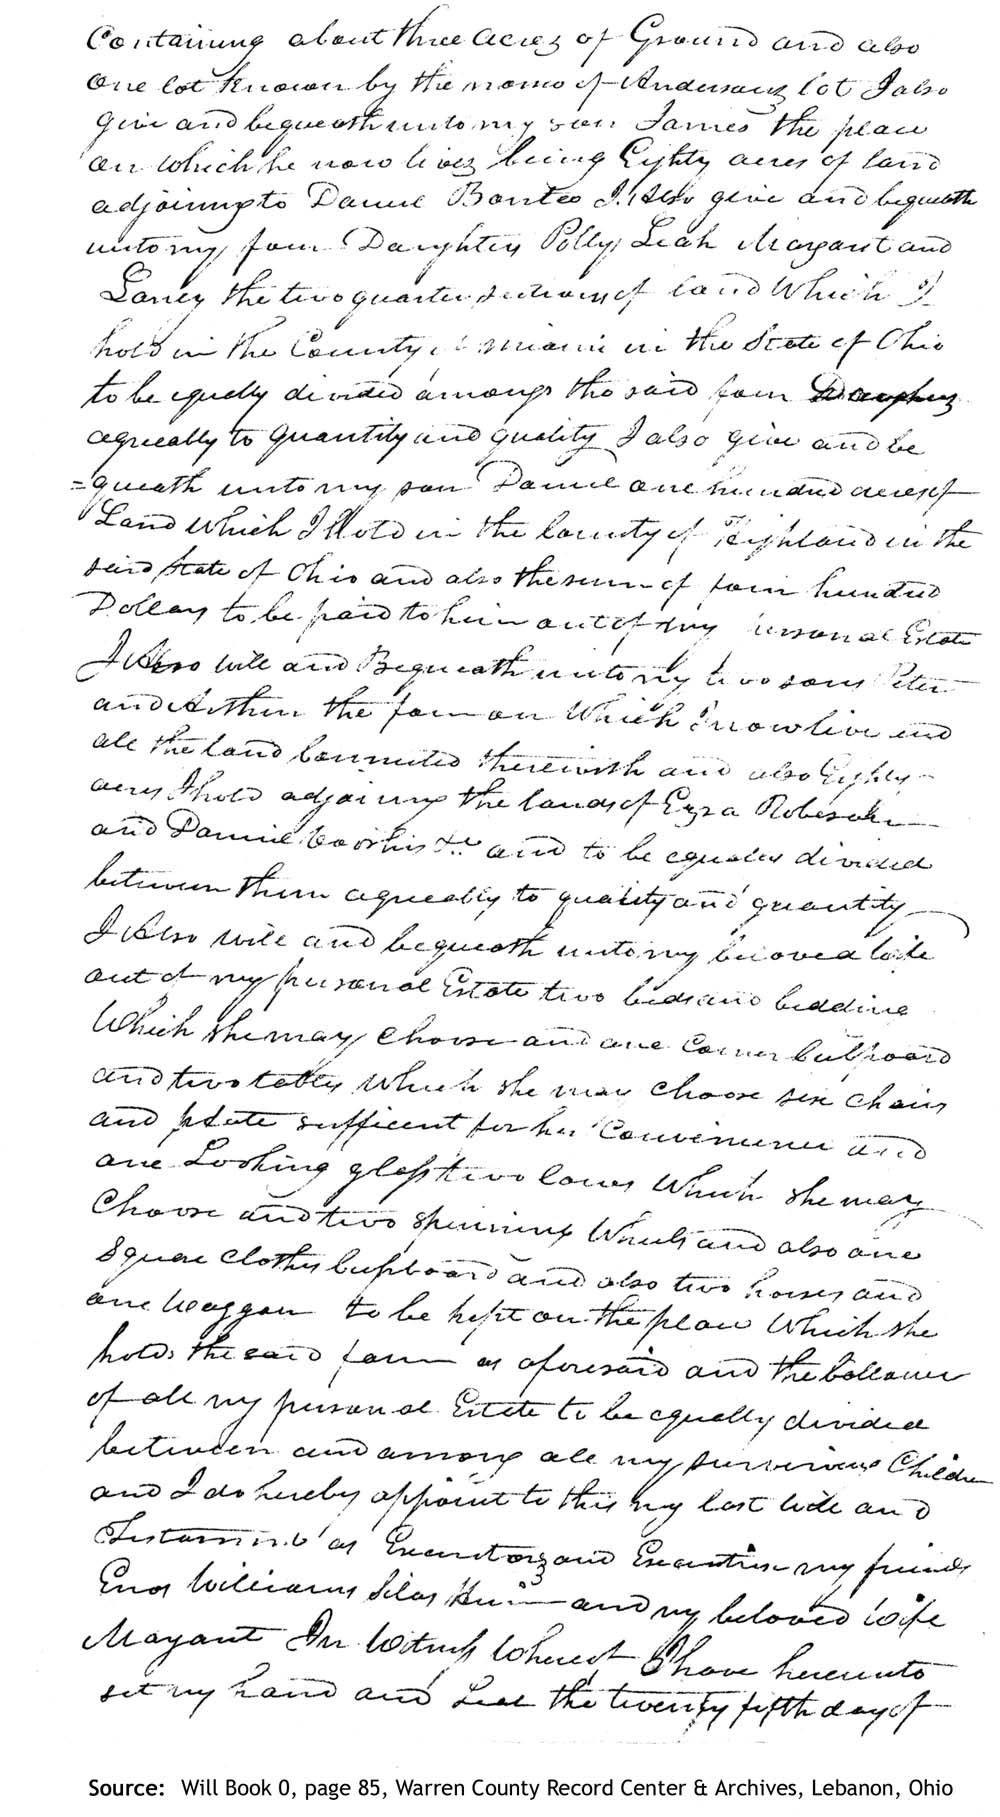 Containing about three acres of Ground and also
one lot known by the name of Andersons lot I also
give and bequeath unto my son James the place
on which he now lives being Eighty acres of land
adjoining to Daniel Bonte I Also give and bequeath
unto my four Daughters Polly Leah Margaret and
Laney the two quarter sections of land Which I
hold in the County of Miami in the State of Ohio
to be equelly divided amongs the said four Daughters
agreeably to Quantity and quality I also give and be
=queath unto my son Daniel one hundred acres of
Land which I Hold in the County of Highland in the
said State of Ohio and also the sum of four hundred
Dollars to be paid to him out of my personal Estate
I Also will and Bequeath unto my two sons Peter
and Arthur the farm on Which I now live and
all the land connected therewith and also Eighty
acres I hold adjoining the lands of Ezra
and Daniel Voorhis &c and to be equally divided
between them agreeably to quality and quantity
I Also will and bequeath unto my beloved wife
out of my personal Estate two beds and bedding
Which she may choose and one Corner Cubpoard
and two tables Which she may choose six chairs
and plate sufficient for her Convenience and
one Looking glass two cows Which she may
Choose and two spinning Wheels and also one
Square Cloths Cupboard and also two horses and
one Waggon to be kept on the place Which she
holds the said farm as aforesaid and the ballance
of all my personal Estate to be equelly divided
between and among all my surviving Children
and I do hereby appoint to this my last Will and
Testament as Executors and Executrix my friends
Enos Williams Silas and my beloved Wife
Margaret In Witness Whereof I have hereunto
set my hand and Seal the twenty fifth day of
Source: Will Book 0, page 85, Warren County Record Center & Archives, Lebanon, Ohio